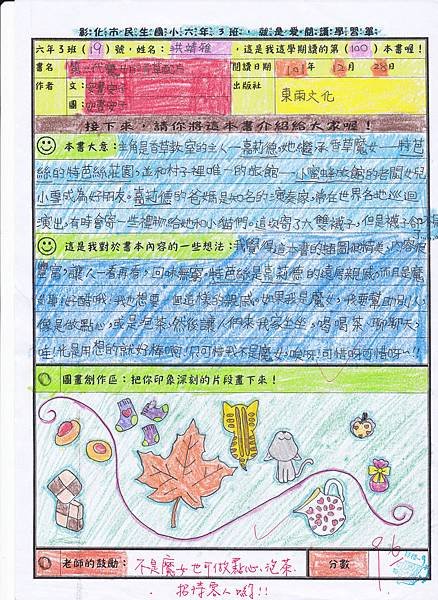 彰化市民生國小六年3班，就是愛閱讀學習單
六年3班(19)號，姓名：洪靖雅，這是我這學期讀的第(100)本書喔！
書名 閱讀日期 101年12月28日
作者 文： 出版社 東雨文化
圖：
接下來，請你將這本書介紹給大家喔！
本書大意：主角是香草教室的主人—嘉莉德，她繼承香草魔女—特芭
絲的特芭絲莊園，並和村子裡唯一的旅館—小蜜蜂旅館的老闆女兒
小雪成為好朋友。嘉莉德的爸媽是知名的演奏家，常在世界各地巡迴
演出，有時會寄一些禮物給她和小貓們。這次寄了大雙襪子，但是襪子卻不
這是我對於書本內容的一些想法：我覺得這本書的插圖很精美，內容很
豐富，讓人一看再看，回味無窮。特芭絲是嘉莉德的遠房親戚，而且是魔
女，我也想要一個這樣的親戚。如果我是魔女，我要幫助別人，
像是做點心，或是泡茶，然後讓人們來我家坐坐，喝喝茶，聊聊天，
哇！光是用想的就好棒啊！只可惜我不是魔女，唉呀！可惜呀可惜呀～!!
圖畫創作區：把你印象深刻的片段畫下來！
老師的鼓勵： 不是魔女也可做點心、泡茶 分數 96
招待客人喲!!